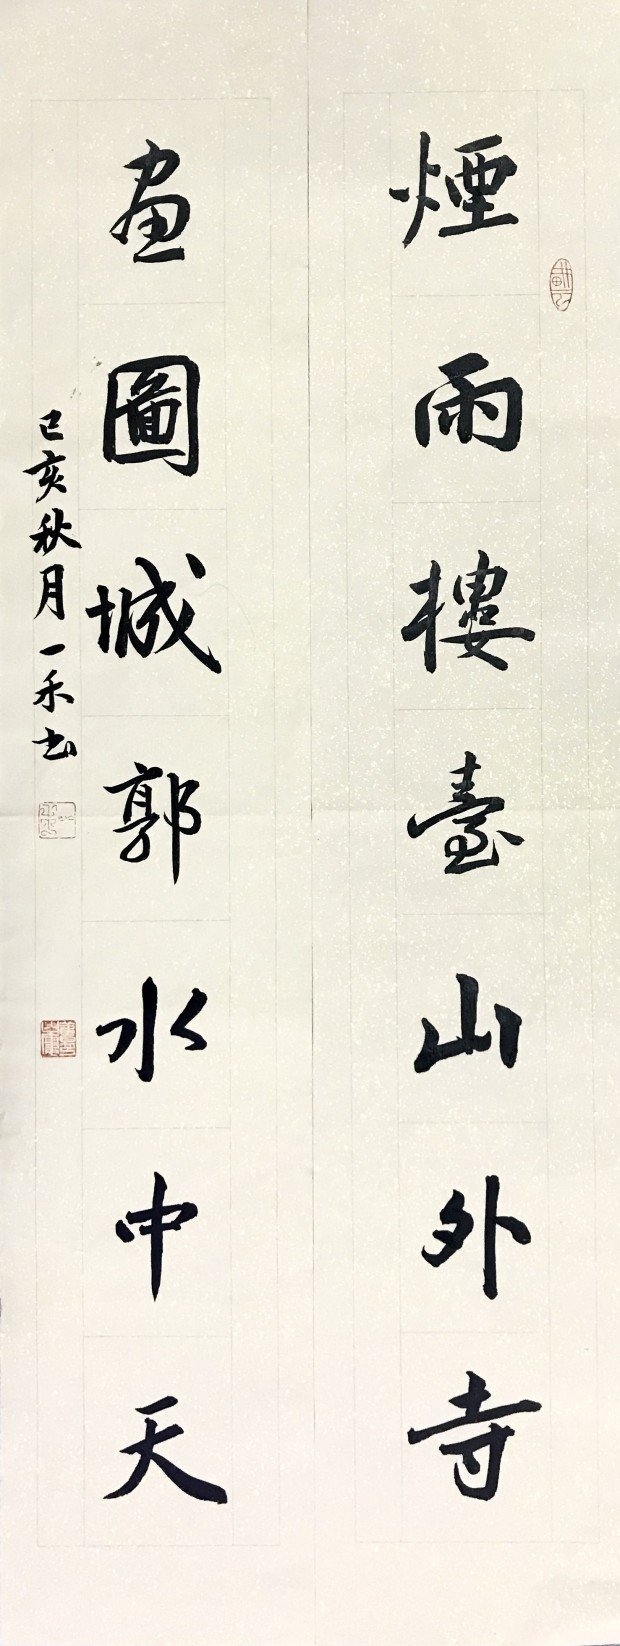 煙雨樓臺山外寺
畫圖城郭水中天
己亥秋月一禾书